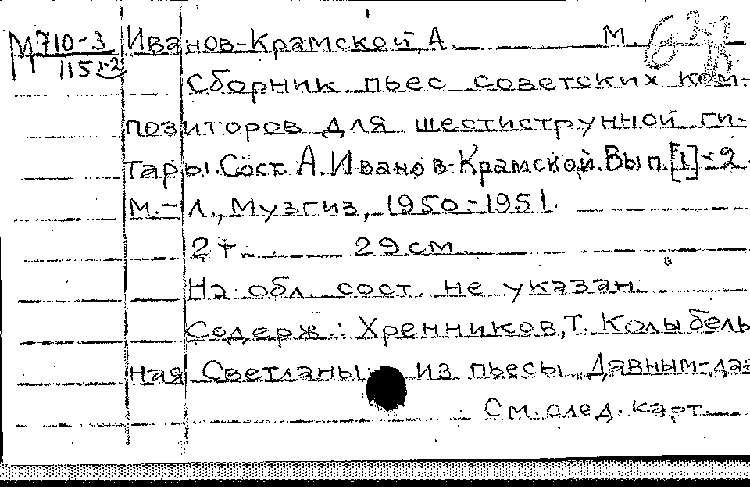 М 710-3 Иванов-Крамской, А. М.
1151-2
Сборник пьес советских ком-
позиторов для шестиструнной ги-
тары. Сост. А. Иванов-Крамской. Вып. [1]-2
М.-Л., Музгиз, 1950-1951.
2 т. 29 см
На обл. сост. не указан.
Содерж.: Хренников, Т. Колыбель-
ная Светланы из пьесы "Давным-дав
См. след. карт.